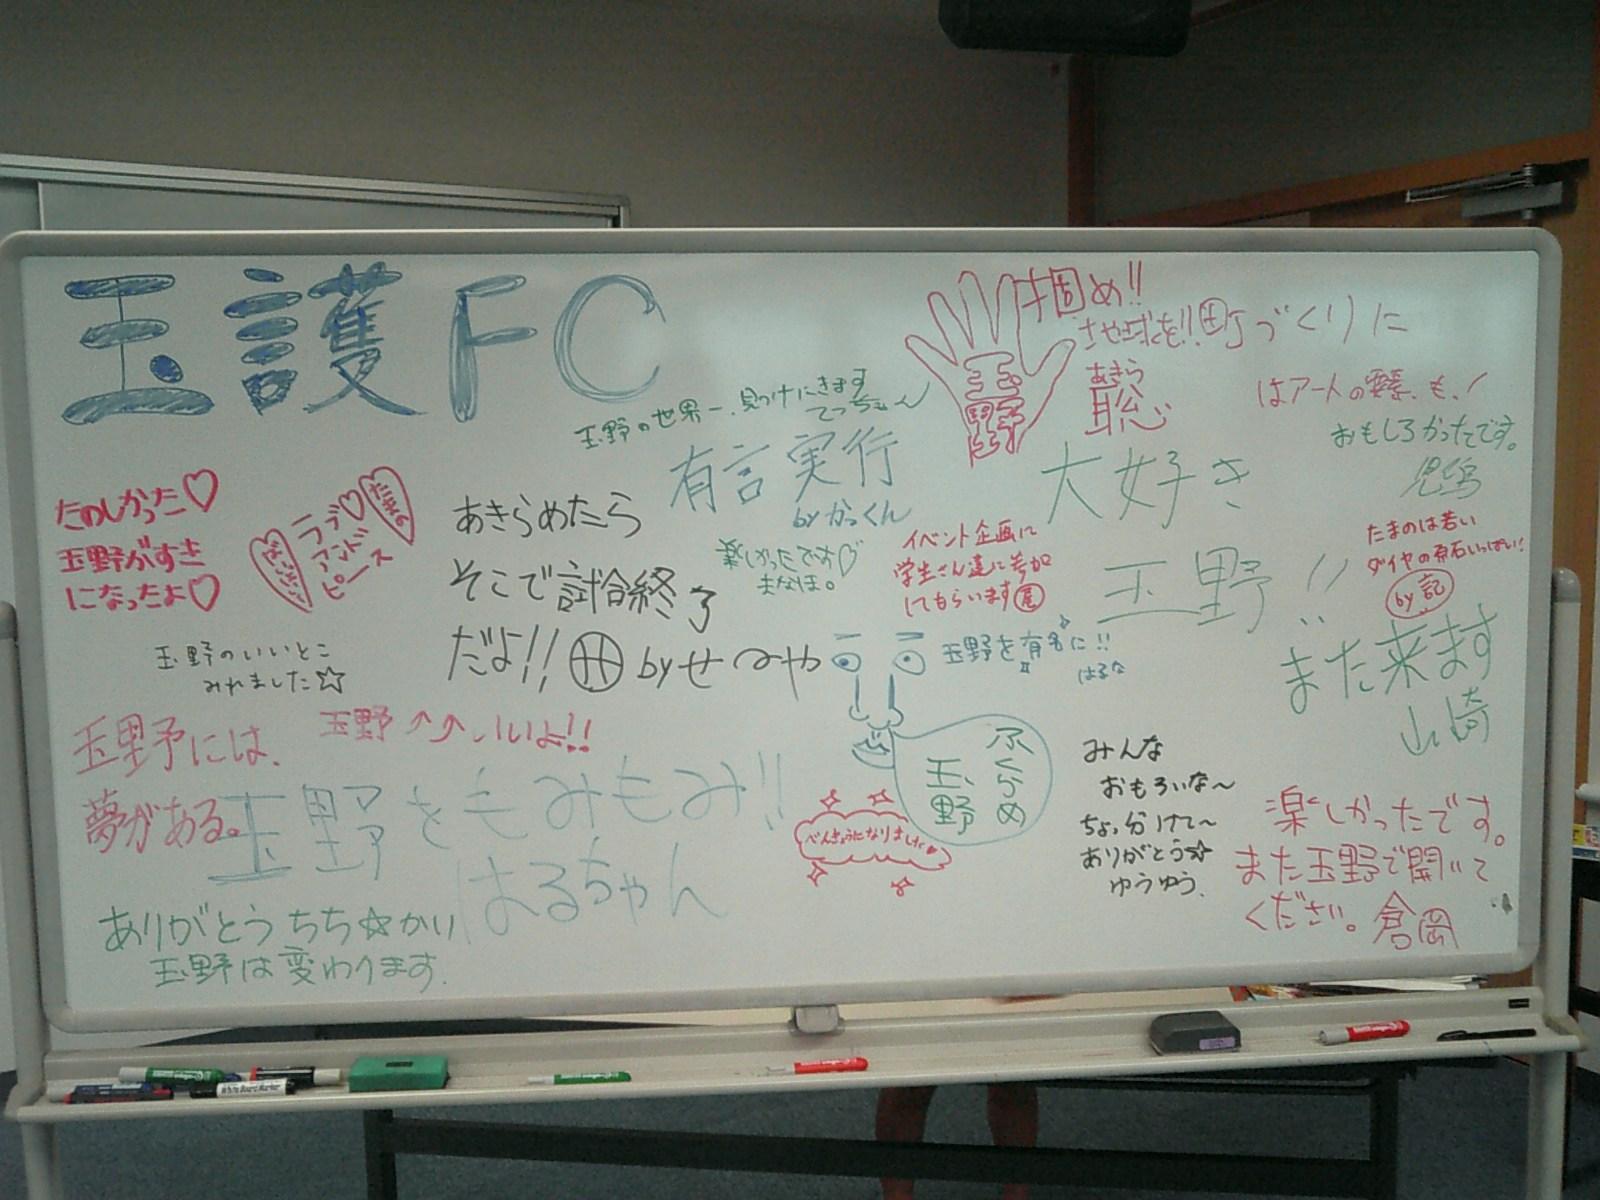 玉護FC
掴め!!
地球を!!
玉野
あきら
聡
町づくりに
はアートの要素も!
おもしろかったです。
児島
玉野の世界一、見つけにきます
てっちゃん
有言実行
byかっくん
大好き
玉野!!
また来ます
山崎
たのしかった♡
玉野がすき
になったよ♡
たまの
ラブ♡
アンド
ピース
あきらめたら
そこで試合終了
だよ!!
byせーや
楽しかったです♡
まなほ。
イベント企画に
学生さん達に参加
してもらいます 尾
たまのは若い
ダイヤの原石いっぱい!
by 記
玉野のいいとこ
みれました☆
玉野を有名に!!
はるな
玉野には、
夢がある。
玉野↗↗いいよ!!
玉野をもみもみ!!
はるちゃん
ふくらめ
玉野
べんきょうになりました♥
みんな
おもろいな~
ちょっ分けて~
ありがとう☆
ゆうゆう.
楽しかったです。
また玉野で開いて
ください。 倉岡
ありがとう ちち☆かり
玉野は変わります.
White Board Marker